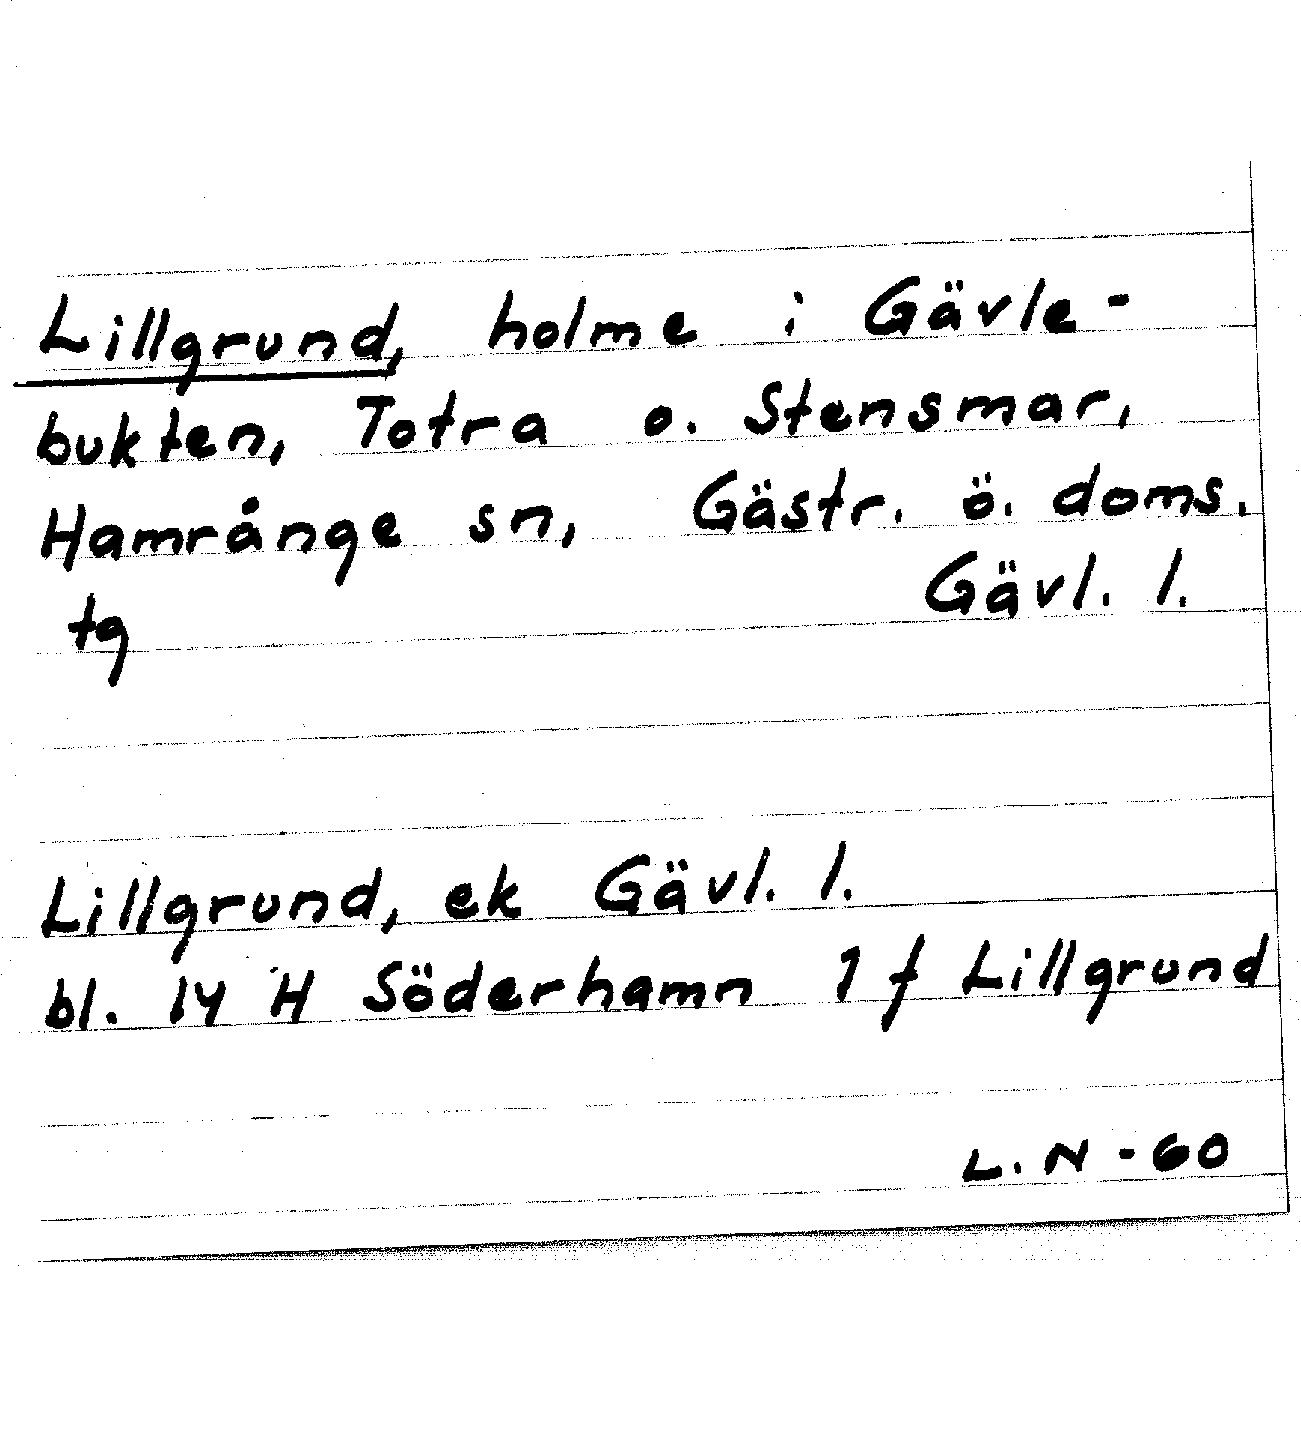 Lillgrund, holme i Gävle-
bukten, Totra o. Stensmar,
Hamrånge sn, Gästr. ö. doms.
tg Gävl. l.
Lillgrund, ek Gävl. l.
bl. 14 H Söderhamn 1 f Lillgrund
L. N - 60